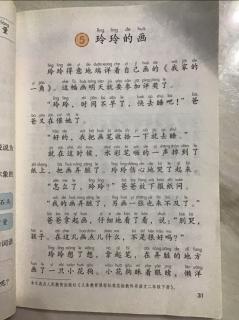 5 玲玲的画
玲玲得意地端详着自己画的《我家的
一角》。这幅画明天就要参加评奖了。
“玲玲,时间不早了,快去睡吧!”爸
爸又在催她了。
“好的,我把画笔收拾一下就去睡。”
就在这时候,水彩笔啪的一声掉到了
纸上,把画弄脏了。玲玲伤心地哭了起来。
“怎么了,玲玲?”爸爸放下报纸问。
“我的画弄脏了,另画一张也来不及了。”
爸爸拿起画,仔细地看了看,说:“别哭,
孩子。在这儿画点儿什么,不是很好吗?”
玲玲想了想,拿起笔,在弄脏的地方
画了一只小花狗。小花狗眯着眼睛,懒洋
31